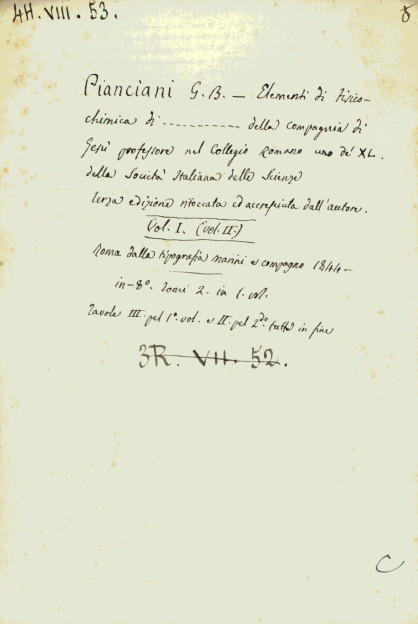 4H. VIII. 53.
Pianciani G. B. — Elementi di Fisico-
chimica di ........... della Compagnia di
Gesù professore nel Collegio Romano uno de' XL.
della Società Italiana delle Scienze
terza edizione ritoccata ed accresciuta dall'autore.
Vol. I. (vol. II.)
Roma dalla tipografia Marini e compagno 1844 —
in-8º. Tomi 2. in 1. vol.
Tavole III. pel 1º. vol. e II. pel 2do. tutte in fine
3R. VII. 52.
C